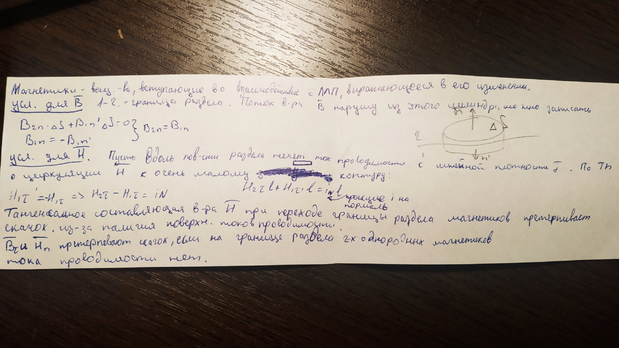 Магнетики - вещ-ва, вступающие во взаимодействие с МП, выражающееся в его изменении.
усл. для B̅ 1-2 - граница раздела. Поток в-ра B̅ наружу из этого цилиндра можно записать
B₂ₙ·ΔS + B₁ₙ'·ΔS = 0 } B₂ₙ = B₁ₙ
B₁ₙ = -B₁ₙ'
n ΔS
2
1
n'
усл. для H̅. Пусть вдоль пов-сти раздела течет ток проводимости с линейной плотностью i̅. По Тм
о циркуляции H̅ к очень малому контуру:
H₂τ l + H₁τ' l = i_N l
H₁τ' = -H₁τ => H₂τ - H₁τ = i_N
проекция i на
нормаль
Тангенсальное составляющая в-ра H̅ при переходе границы раздела магнетиков претерпивает
скачок из-за наличия поверхн. токов проводимости.
Bτ и Hₙ претерпевают скачок, если на границе раздела 2х однородных магнетиков
тока проводимости нет.